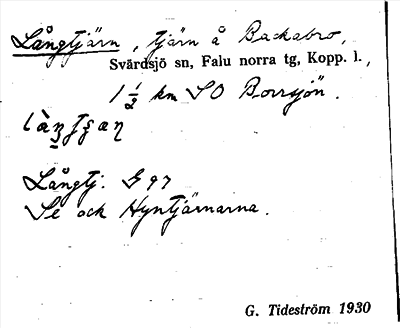 Långtjärn, tjärn å Backabro,
Svärdsjö sn, Falu norra tg, Kopp. l.,
1 ½ km SO Borrsjön.
Långtj. G 97
Se och Hyntjärnarna.
G. Tideström 1930